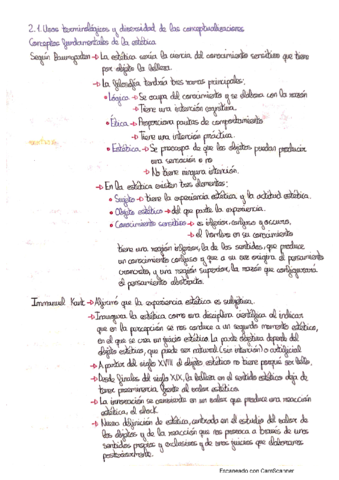 2.1. Usos terminológicos y diversidad de las conceptualizaciones
Conceptos fundamentales de la estética
Según Baumgarten → La estética sería la ciencia del conocimiento sensitivo que tiene
por objeto la belleza.
→ La filosofía tendría tres ramas principales:
• Lógica → Se ocupa del conocimiento y se elabora con la razón
→ Tiene una intención cognitiva.
• Ética → Proporciona pautas de comportamiento
→ Tiene una intención práctica.
• Estética → Se preocupa de que los objetos puedan producir
una sensación o no
→ No tiene ninguna intención.
→ En la estética existen dos elementos:
• Sujeto → tiene la experiencia estética y la actitud estética.
• Objeto estético → del que parte la experiencia.
• Conocimiento sensitivo → es inferior, confuso y oscuro,
el hombre en su conocimiento
tiene una región inferior, la de los sentidos, que produce
un conocimiento confuso y que a su vez origina el pensamiento
concreto, y una región superior, la razón que configuraría
el pensamiento abstracto.
Immanuel Kant → Afirmó que la experiencia estética es subjetiva.
→ Inaugura la estética como una disciplina científica al indicar
que en la percepción se nos conduce a un segundo momento estético,
en el que se crea un juicio estético. La parte objetiva depende del
objeto estético, que puede ser natural (sin intención) o artificial
→ A partir del siglo XVIII el objeto estético no tiene porqué ser bello.
→ Desde finales del siglo XIX, la belleza en el sentido estético deja de
tener preeminencia frente al valor estético.
→ La innovación se convierte en un valor que produce una reacción
estética, el shock.
→ Nueva definición de estética, centrada en el estudio del valor de
los objetos y de la reacción que nos provoca a través de unos
sentidos propios y exclusivos y de unos juicios que elaboramos
posteriormente.
Escaneado con CamScanner